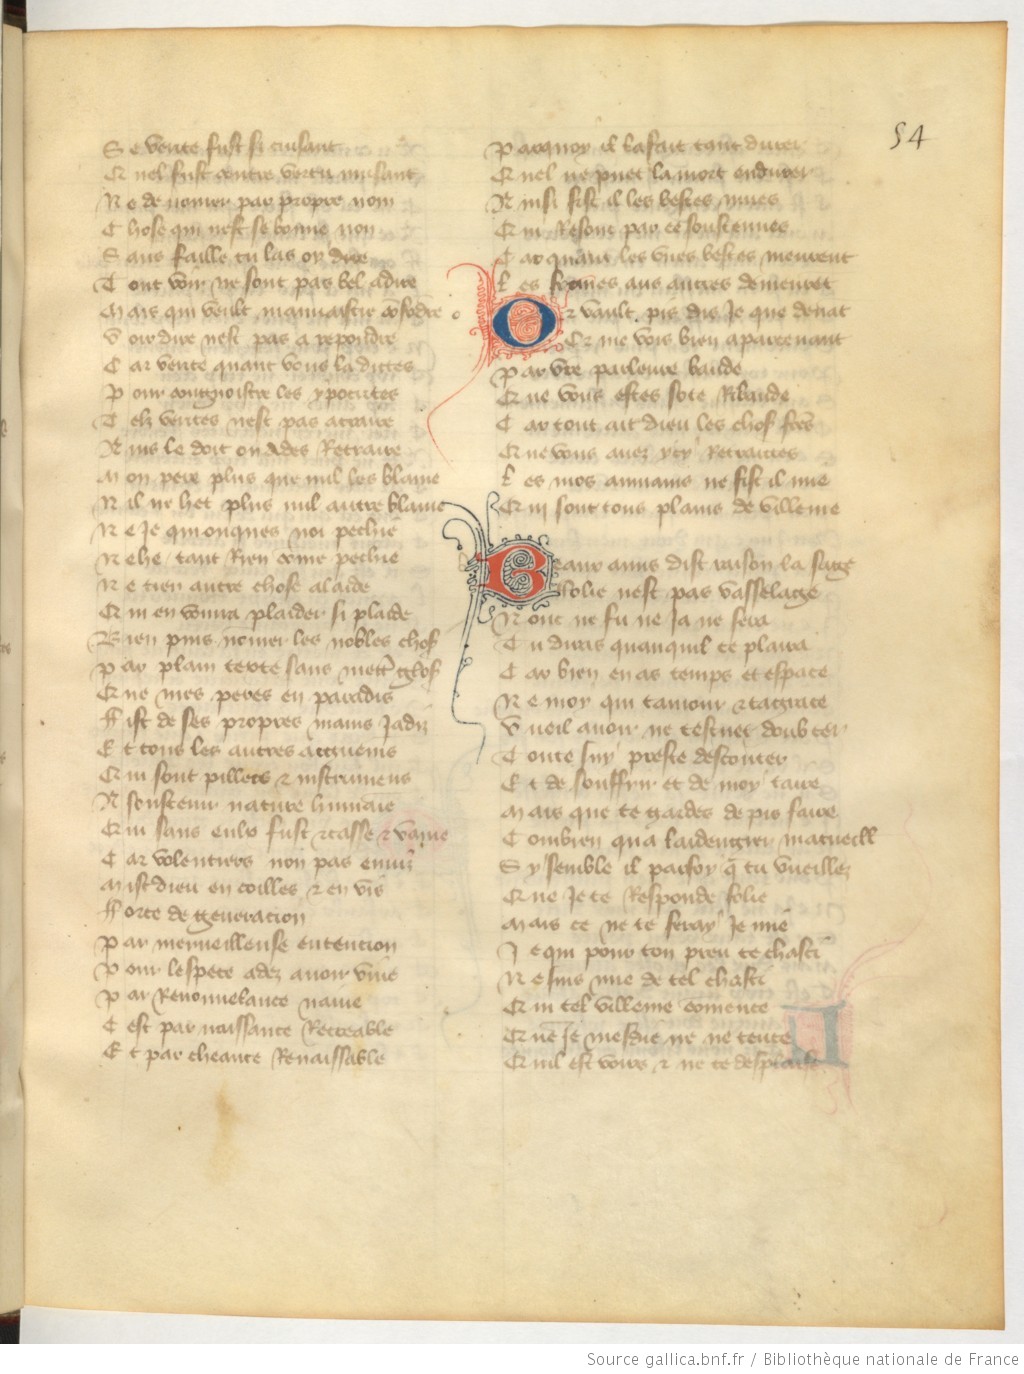 54
Se verite fust si cuisant
Et nel fust contre vertu nuisant
Ne de nomer par propre nom
Chose qui nest se bonne non
Sans faille tu las oy dire
Tout voir ne sont pas bel a dire
Mais qui veult
Voir dire nest pas a repondre
Car verite quant vous la dictes
Pour congnoistre les ypocrites
Telz verites nest pas
Ains le doit on ades Retraire
Mon pere plus que nul les blame
Nil ne het plus nul autre blame
Ne Je quionques noi pechie
Nehe tant Rien come pechie
Ne tien autre chose a laide
Et men plaider si plaide
Bien puis nomer les nobles chos
Par plain texte sans mettr glos
Que mes peres en paradis
Fist de ses propres mains Jadis
Et tous les autres
Qui sont pillers et instrumens
A soustenir nature humaine
Qui sans eulx fust et casse et vaine
Car volentiers non pas enuis
Mist dieu en coilles et en vis
Force de generacion
Par merueilleuse entencion
Pour lespece adez auoir viue
Par Renouuelance naiue
Cest par naissance Recreable
Et par cheance Renaissable
Parquoy il la fait tant durer
Quel ne puet la mort endurer
Ainsi fist il les bestes mues
Qui Resont par ce soustenues
Car quant les vnes bestes meurent
Les formes aus autres demeurent
Or vault pis dis Je que deuant
Car me vois bien aparceuant
Par vre parleure baude
Que vous estes sote Ribaude
Car tout ait dieu les chos fces
Que vous auez ycy Retraittes
Les mos aumains ne fist il mie
Qui sont tous plains de villenie
Beaux amis dist raison la sage
Folie nest pas vasselage
Nonc ne fu ne Ja ne sera
Tu diras quanquil te plaira
Car bien en as temps et espace
Ne moy qui tamour et ta grace
Vueil auoir ne testuet doubter
Toute suy preste descouter
Et de souffrir et de moy taire
Mais que te gardes de pis faire
Combien qua laidengier macueill
Sy semble il par foy q tu vueilles
Que Je te Responde folie
Mais ce ne te feray Je mie
Je qui pour ton preu te chasti
Ne suis mie de tel chasti
Qui tel villenie comence
Que Je mesdie ne ne tence
Quil est voirs et ne te desplaise